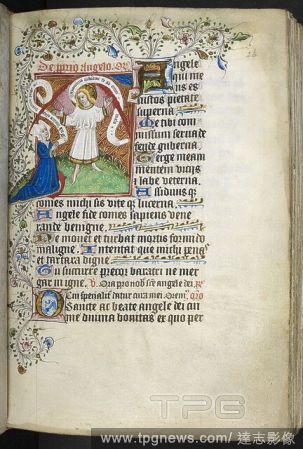 De proprio Angelo. Or
Angele
qui me
us es
custos pietate
superna
Me tibi com
missum serva de
fende guberna
Terge meam
mentem vicijs
labe veterna
Assiduus
comes michi sis vite q lucerna
Angele fide comes sapiens vene
rande benigne
Me movet et turbat mortis formido
maligne. Intentat que michi
et tartara digne
Tu succurre precor baratri ne mer
gar in igne. v. Ora pro nobis angele dei
Cui specialit datur cura mei. Orem
Sancte ac beate angele dei an
me divina bonitas ex quo per
TPG
www.tpgnews.com/ 達志影像